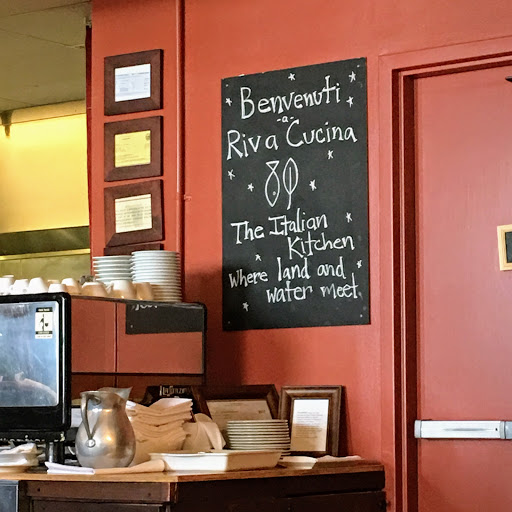 Benvenuti
-a-
Riva Cucina
The Italian
Kitchen
where land and
water meet